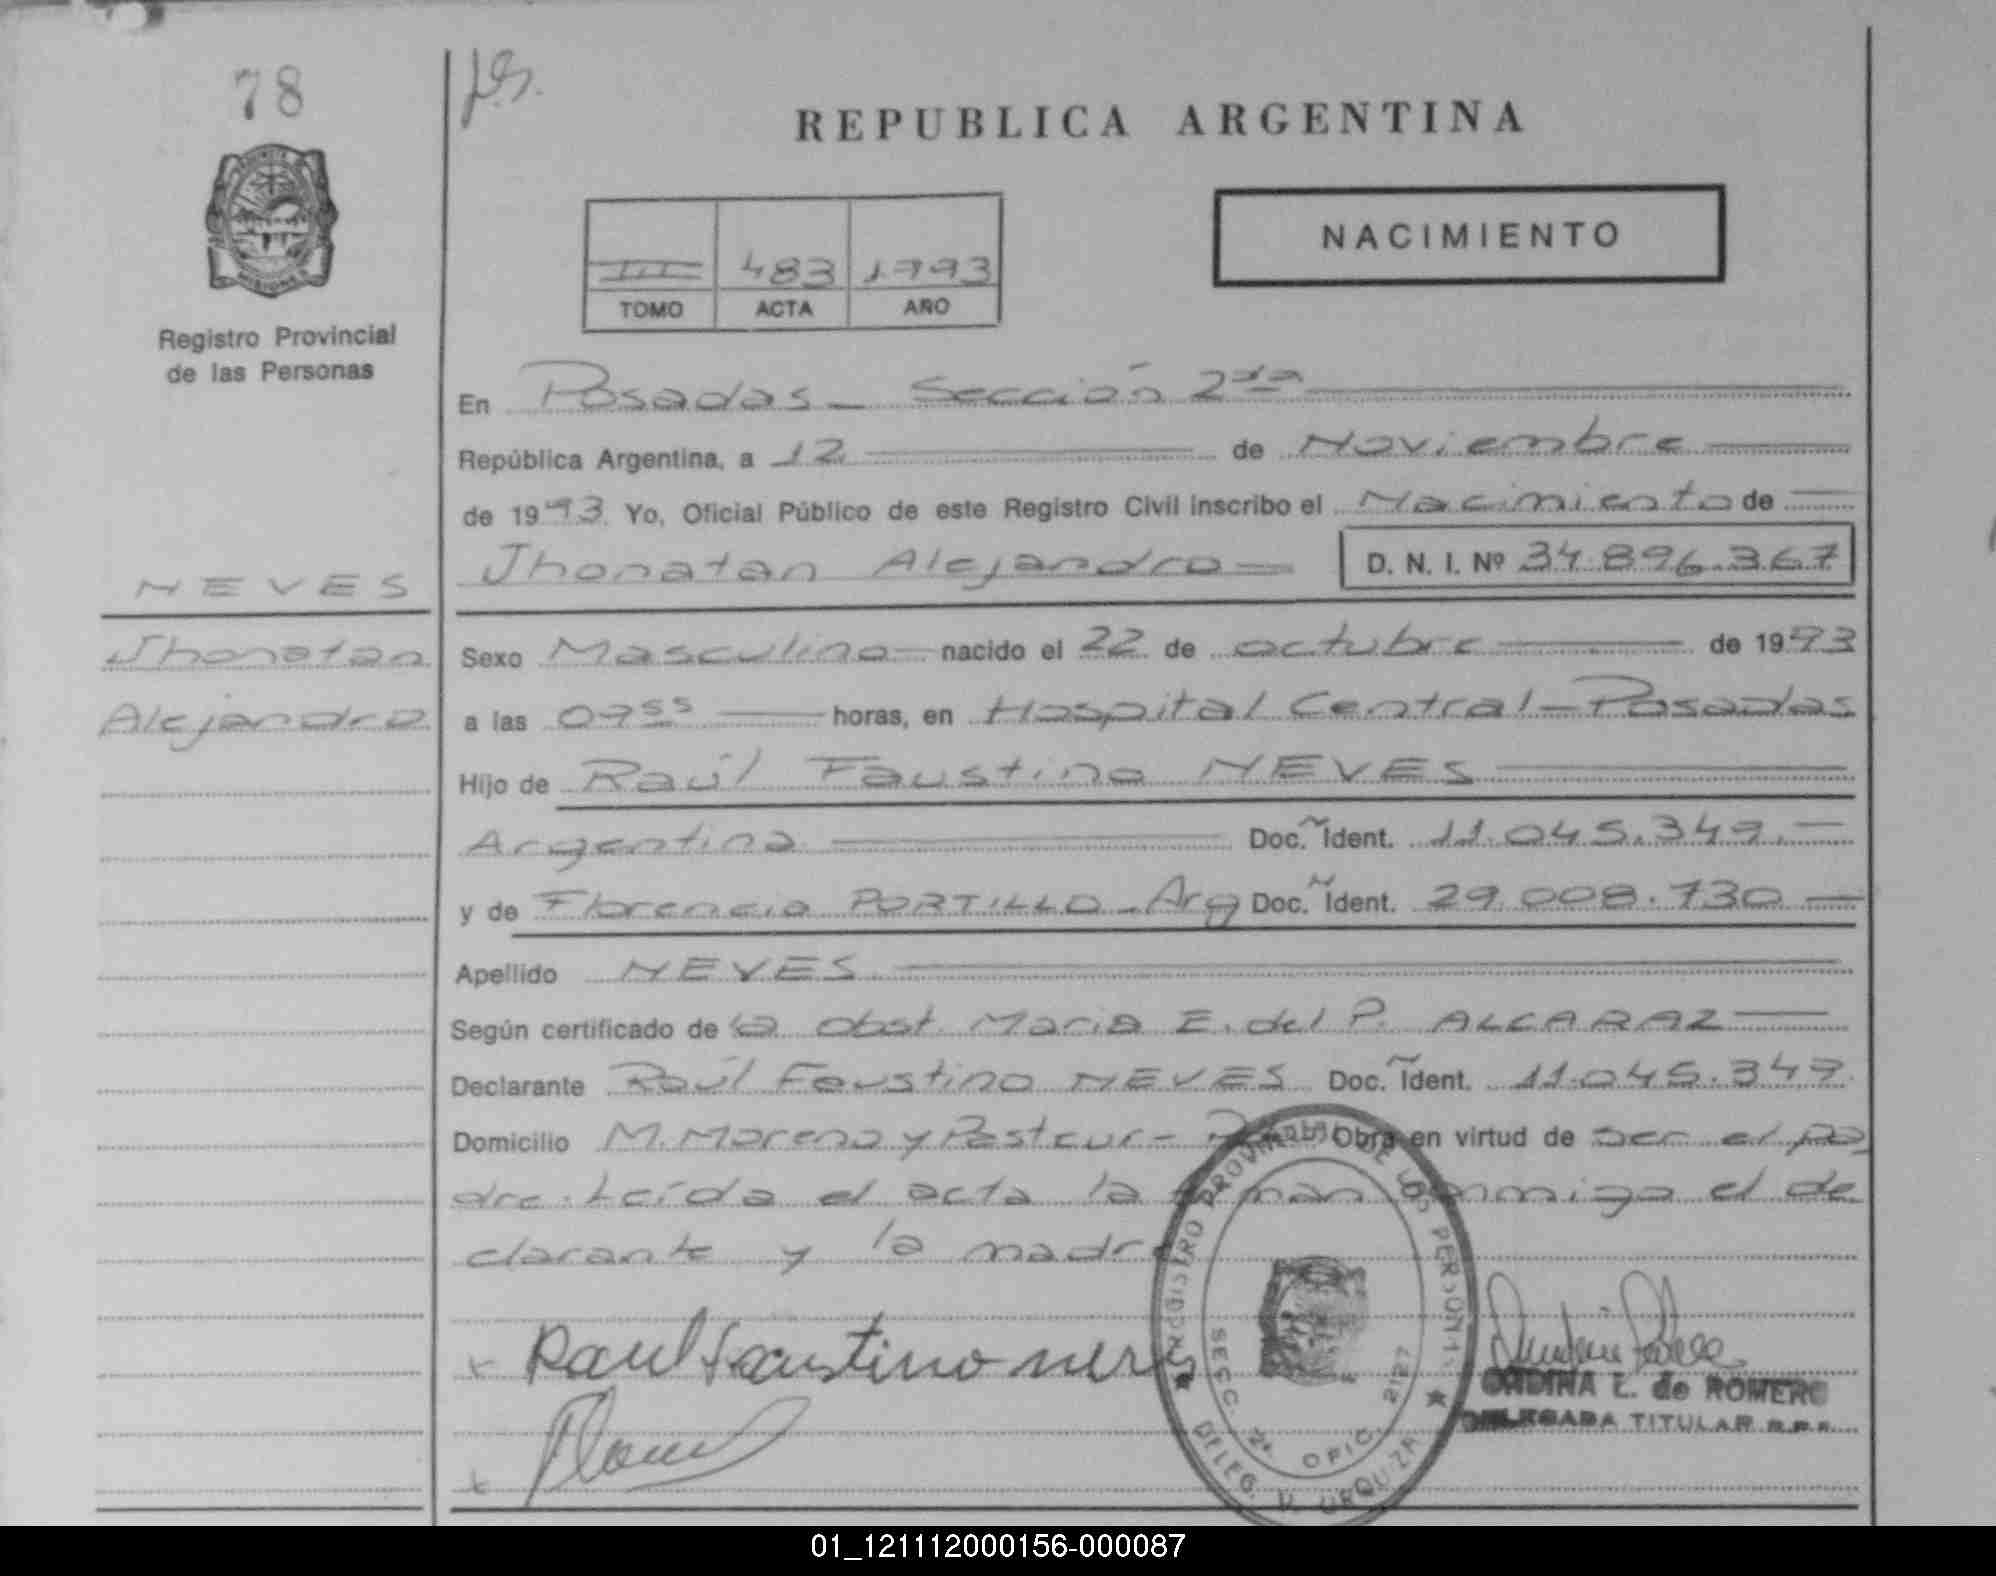 78
REPUBLICA ARGENTINA
NACIMIENTO
III 483 1993
TOMO ACTA AÑO
Registro Provincial
de las Personas
En Posadas - Sección 2da
República Argentina, a 12 de Noviembre
de 1993 Yo, Oficial Público de este Registro Civil inscribo el Nacimiento de
Jhonatan Alejandro D. N. I. Nº 34.896.367
NEVES
Jhonatan
Alejandro
Sexo Masculino nacido el 22 de octubre de 1993
a las 0755 horas, en Hospital Central - Posadas
Hijo de Raúl Faustino NEVES
Argentina Doc. Ident. 11.045.349.
y de Florencia PORTILLO - Arg Doc. Ident. 29.008.730
Apellido NEVES
Según certificado de la Obst. Maria E. del P. ALCARAZ
Declarante Raúl Faustino NEVES Doc. Ident. 11.045.349
Domicilio M. Moreno y Pasteur - Obra en virtud de ser el pa
dre. Leída el acta la conmigo el de
clarante y la madre
Raul faustino neves
REGISTRO PROVINCIAL DE LAS PERSONAS
SECC. 2ª OFIC. 2127
DELEG. V. URQUIZA
L. de ROMERO
DELEGADA TITULAR R.P.P.
01_121112000156-000087